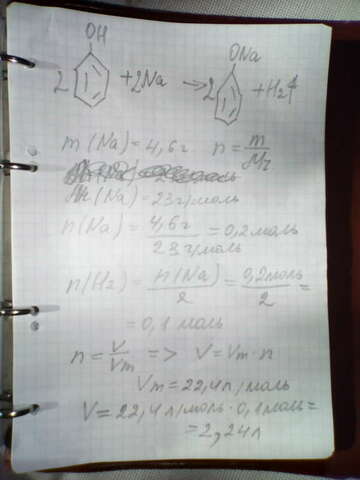 OH ONa
2 + 2Na → 2 + H₂↑
m(Na) = 4,6г n = m/Mr
Mr(Na) = 23 г/моль
n(Na) = 4,6г / 23 г/моль = 0,2 моль
n(H₂) = n(Na)/2 = 0,2 моль/2 =
= 0,1 моль
n = V/Vm => V = Vm · n
Vm = 22,4 л/моль
V = 22,4 л/моль · 0,1 моль =
= 2,24 л